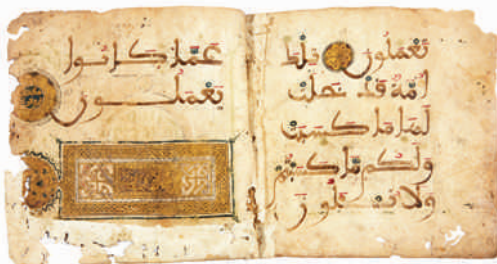 تعملون تلك
أمة قد خلت
لها ما كسبت
ولكم ما كسبتم
ولا تسئلون
عما كانوا
يعملون